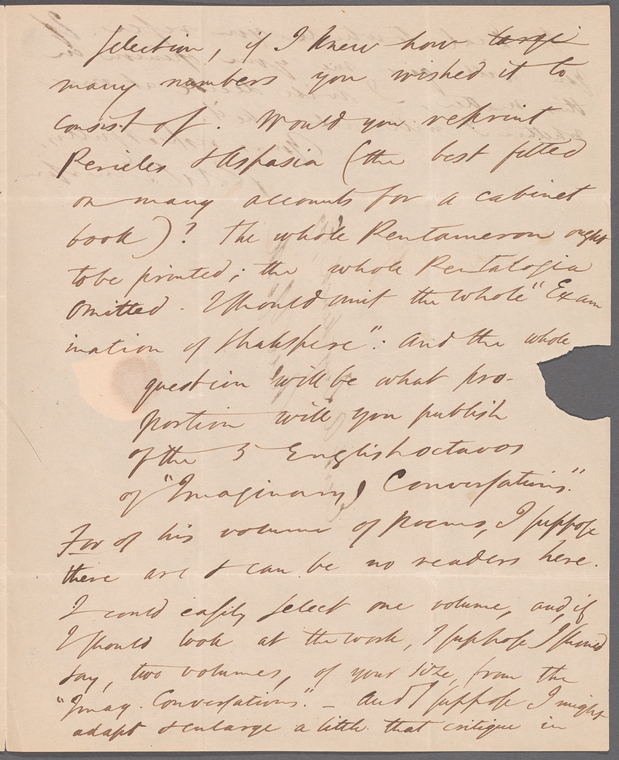 selection, if I knew how large
many numbers you wished it to
consist of. Would you reprint
Pericles & Aspasia (the best fitted
on many accounts for a cabinet
book)? The whole Pentameron ought
to be printed; the whole Pentalogia
omitted. I should omit the whole "Exam
ination of Shakspere": And the whole
question will be what pro-
portion will you publish
of the 5 English octavos
of "Imaginary Conversations."
For of his volume of poems, I suppose
there are & can be no readers here.
I could easily select one volume, and if
I should look at the work, I suppose I should
say, two volumes, of your size, from the
"Imag. Conversations." – And I suppose I might
adapt & enlarge a little that critique in